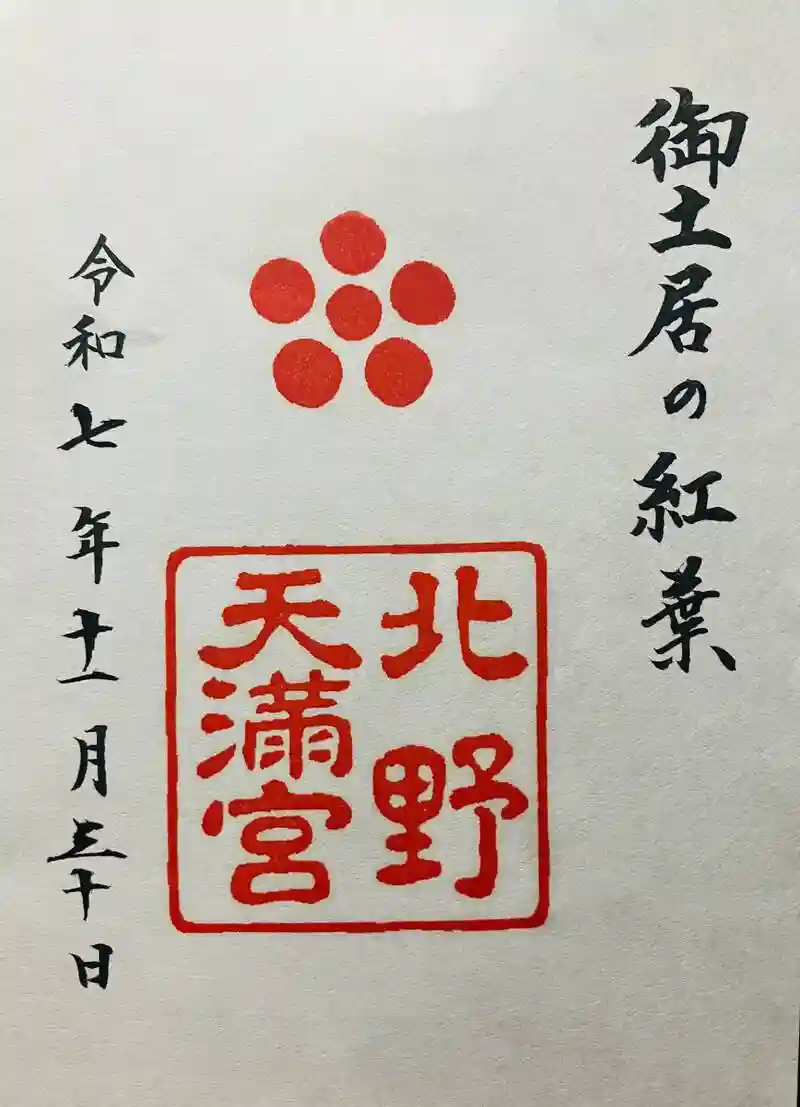 御土居の紅葉
北野
天満宮
令和七年十一月三十日